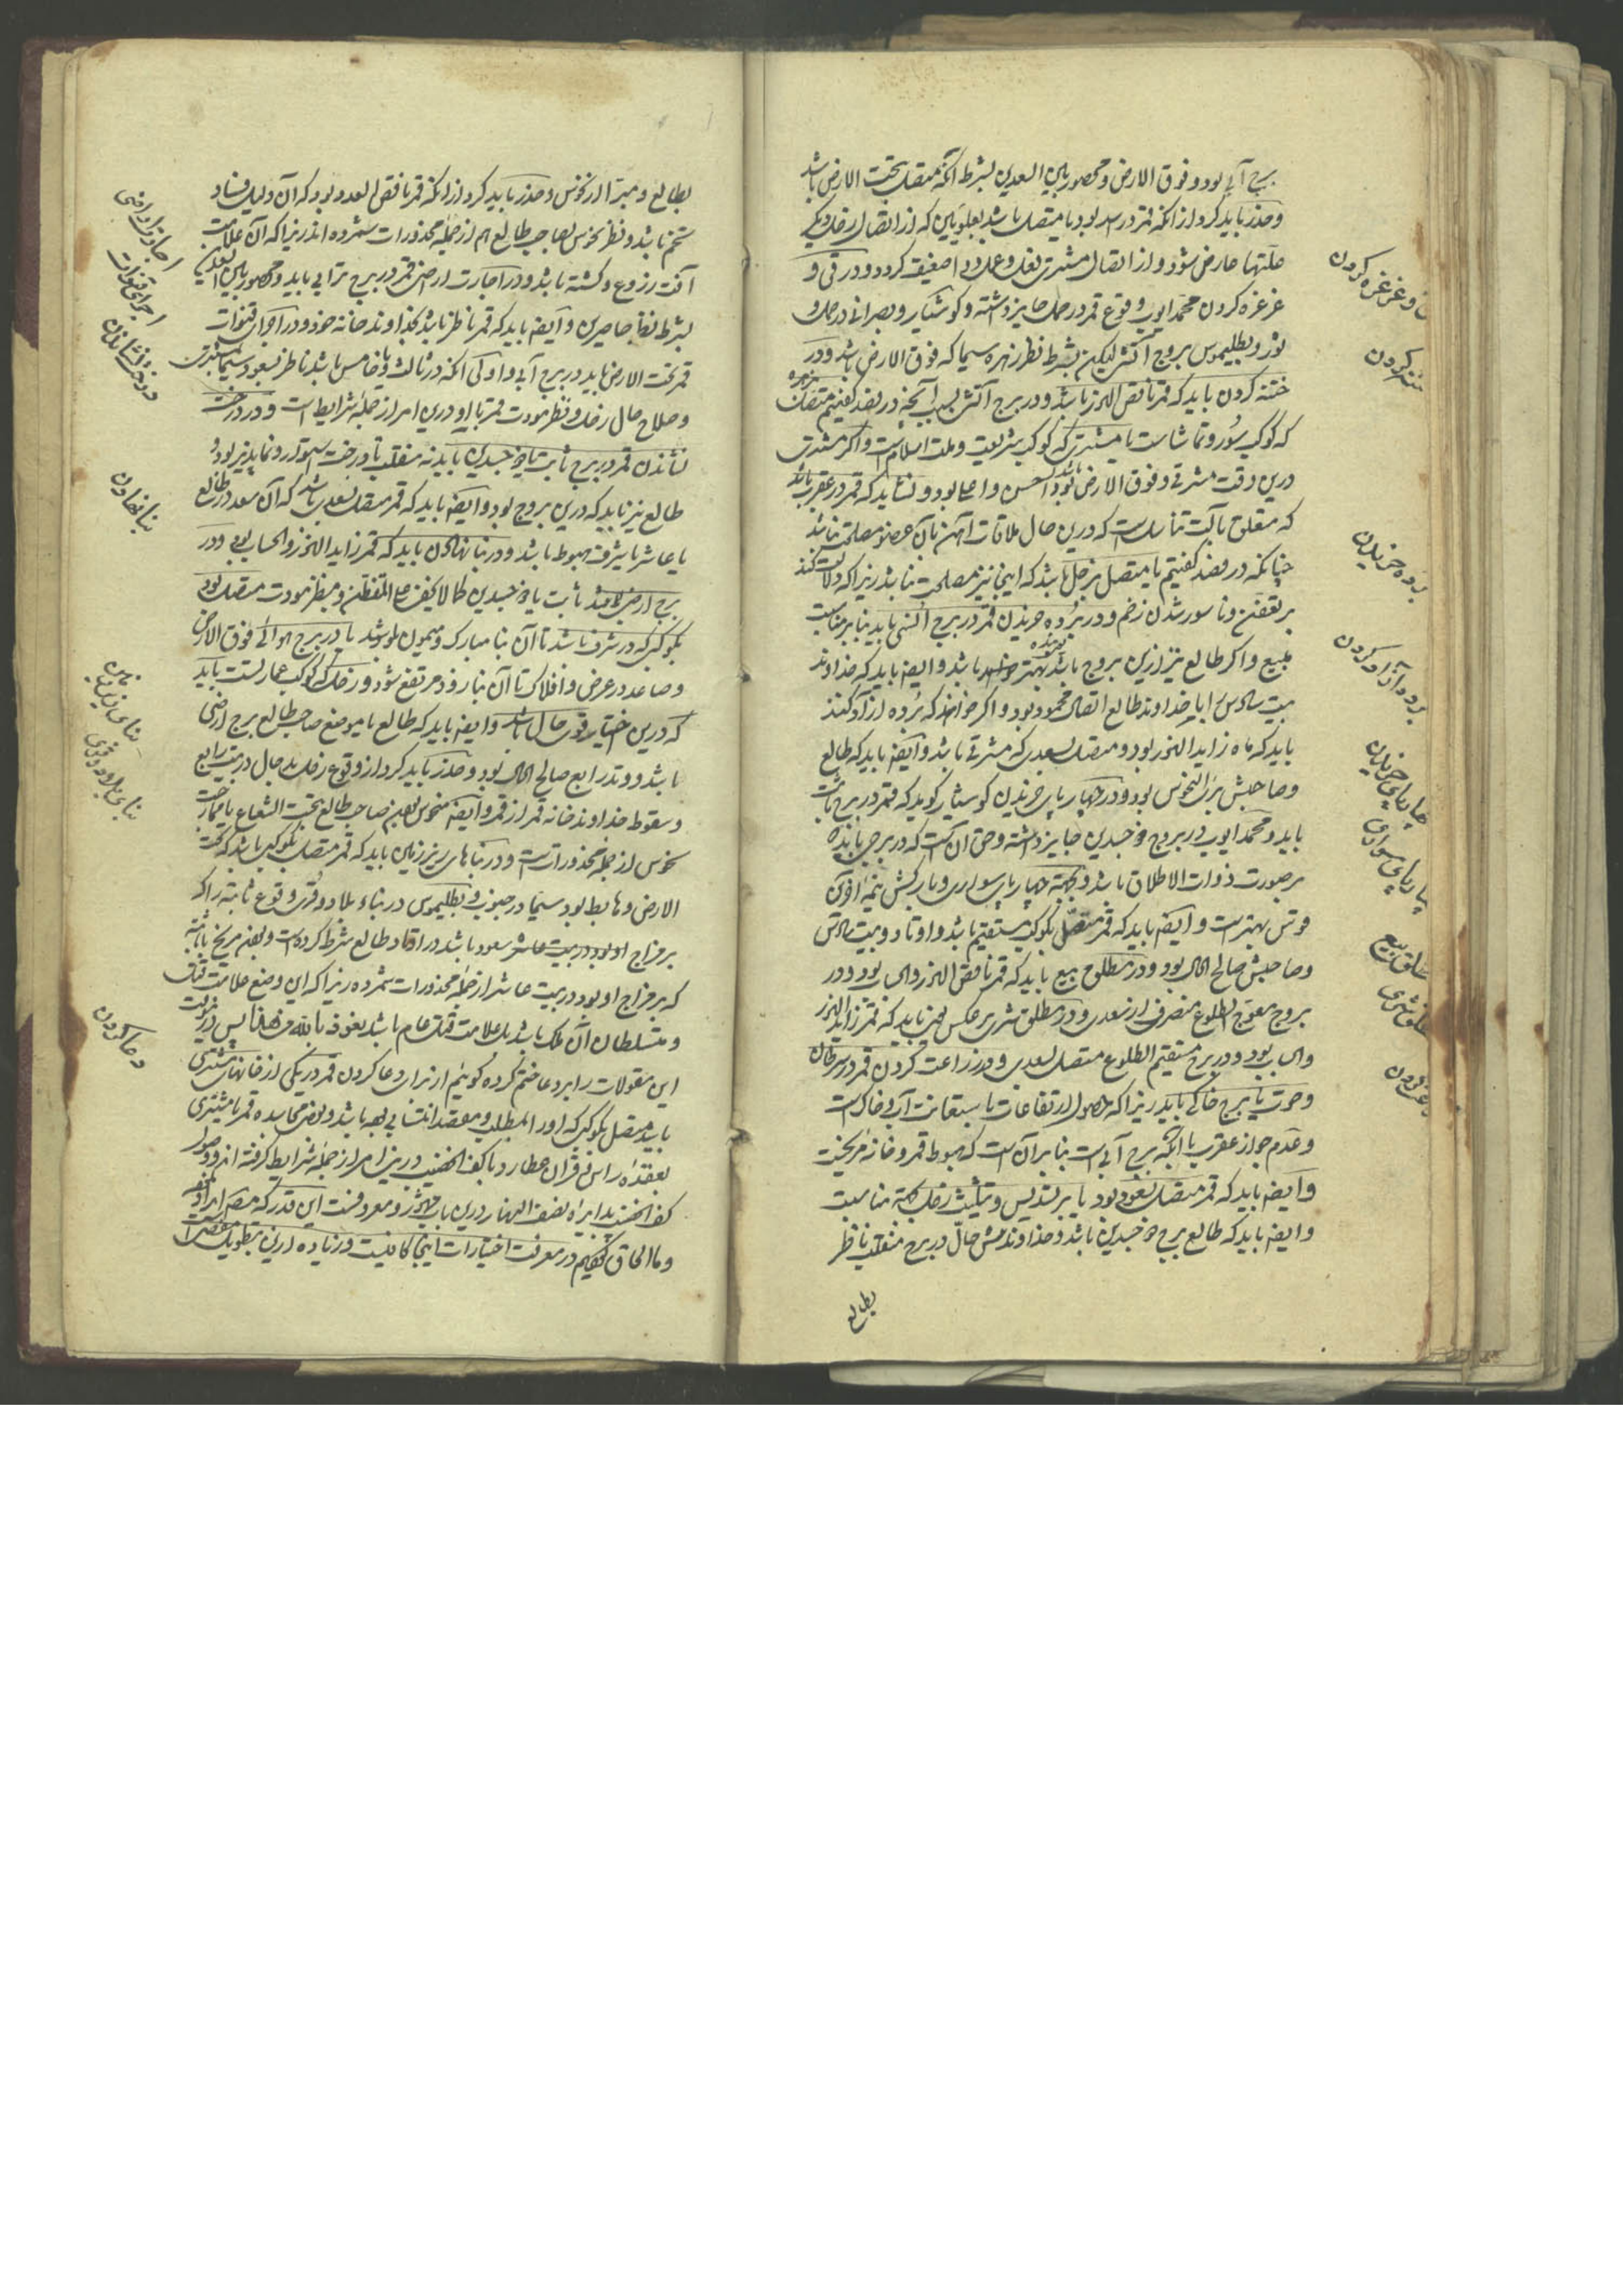 برج آبی بود و فوق الارض و محصور بین السعدین بشرط آنکه متصل بتحت الارض باشد
و حذر باید کرد از آنکه قمر در اسد بود یا متصل باشد بعلویین که از اتصال زحل دیگر
علتها عارض شود و از اتصال مشتری فعل و عمل دوا ضعیف گردد و در قی و
غرغره کردن محمد ایوب وقوع قمر در حمل جایز داشته و کوشیار و بصرانی در حمل و
ثور و بطلیموس بروج آتشی لیکن بشرط نظر زهره سیما که فوق الارض باشد و در
ختنه کردن باید که قمر ناقص النور باشد و در برج آتشی بسبب آنچه در فصد گفتیم متصل بزهره
که کوکب سور و تماشاست یا مشتری که کوکب شریعت و ملت اسلامست و اگر مشتری
درین وقت مشرقی و فوق الارض بود احسن و اعلی بود و نشاید که قمر در عقرب باشد
که متعلق بآلت تناسلست که درین حال ملاقات آهن بآن عضو مصلحت نباشد
چنانکه در فصد گفتیم یا متصل بزحل باشد که اینجا نیز مصلحت نباشد زیرا که دلالت کند
بر تعفن و ناسور شدن زخم و در برده خریدن قمر در برج انسی باید بنابر مناسبت
مبیع و اگر طالع نیز ازین بروج باشد بهتر بوده باشد و ایضا باید که خداوند
بیت سادس را با خداوند طالع اتصال محمود بود و اگر خواهند که برده آزاد کنند
باید که ماه زاید النور بود و متصل بسعدی که مشرقی باشد و ایضا باید که طالع
و صاحبش بری النحوس بود و در چهارپای خریدن کوشیار گوید که قمر در برج ثابت
باید و محمد ایوب در بروج ذو جسدین جایز داشته و حق آن است که در برجی باید که
بر صورت ذوات الاظلاف باشد و بجهت چهارپای سواری و بارکش نیمه آخر
قوس بهتر است و ایضا باید که قمر متصل بکوکب مستقیم باشد و اوتاد و بیت سادس
و صاحبش صالح الحال بود و در مطلق بیع باید که قمر ناقص النور و الحساب بود و در
بروج معوج الطلوع منصرف از سعدی و در مطلق شری بر عکس یعنی باید که قمر زاید النور
و الحساب بود و در برج مستقیم الطلوع متصل بسعدی و در زراعت کردن قمر در سرطان
و حوت یا برج خاکی باید زیرا که حصول ارتفاعات باستعانت آب و خاک است
و عدم جواز عقرب با آنکه برج آبی است بنابر آن است که هبوط قمر و خانه مریخست
و ایضا باید که قمر متصل بسعود بود یا بر تسدیس و تثلیث زحل بجهة مناسبت
و ایضا باید که طالع برج ذو جسدین باشد و خداوندش حال در برج منقلب ناظر
بطالع
غرغره کردن
ختنه کردن
برده خریدن
برده آزاد کردن
چهارپای خریدن
چهارپای سواری
مطلق بیع
مطلق شری
بطالع و مبرا از نحوس و حذر باید کرد از آنکه قمر ناقص العدد بود که آن دلیل فساد
تخم باشد و نظر نحوس بصاحب طالع هم از جمله محذورات شمرده اند زیرا که آن علامت
آفت زروع و کشته باشد و در اجارت اراضی قمر در برج ترابی باید و محصور بین السعدین
بشرط نفاحاصرین و ایضا باید که قمر ناظر باشد بخداوند خانه خود و در اجرای قنوات
قمر تحت الارض باید در برج آبی و اولی آنکه در ثالث یا خامس باشد ناظر بسعود سیما مشتری
و صلاح حال زحل و نظر مودت قمر با او درین امر از جمله شرایط است و در درخت
نشاندن قمر در برج ثابت یا ذو جسدین باید نه منقلب تا درخت استوار و نماپذیر بود و
طالع نیز باید که درین بروج بود و ایضا باید که قمر متصل بسعدی باشد که آن سعد در طالع
یا عاشر یا شرف هبوط باشد و در بنا نهادن باید که قمر زاید النور و الحساب بود و در
برج ارضی لا منقلب ثابت یا ذو جسدین کما لا یخفی علی المتفطن و بنظر مودت متصل بود
بکوکبی که در شرف باشد تا آن بنا مبارک و میمون بود یا در برج هوائی فوق الارض
و صاعد در عرض و افلاک تا آن بنا زود مرتفع شود و زحل که کوکب عمارتست باید
که درین اختیار قوی حال باشد و ایضا باید که طالع یا موضع صاحب طالع برج ارضی
باشد و وتد رابع صالح الحال بود و حذر باید کرد از وقوع زحل بد حال در بیت رابع
و سقوط خداوند خانه قمر از قمر و ایضا منحوس بودن صاحب طالع بتحت الشعاع یا بممازجت
نحوس از جمله محذوراتست و در بناهای زیر زمین باید که قمر متصل بکوکبی باشد که تحت
الارض و هابط بود سیما در جنوب و بطلیموس در بناء بلاد و قری وقوع ثابته را که
بر مزاج او بود در بیت عاشر سعود باشد در اوتاد طالع شرط کرده است و بعضی مریخ یا ثابته
که بر مزاج او بود در بیت عاشر از جمله محذورات شمرده زیرا که این وضع علامت قتل
و تسلط آن ملک باشد بل علامت قتل عام باشد نعوذ بالله من هذا پس درین وقت
این مقولات را بر دعا ختم کرده گوئیم از برای دعا کردن قمر در یکی از خانهای مشتری
باید متصل بکوکبی که او را بمطلب و مقصد انتسابی بوده باشد و بعضی مجاسده قمر با مشتری
بعقده راس و قران عطارد با کف الخضیب درین امر از جمله شرایط گرفته اند و وصول
کف الخضیب بدایره نصف النهار درین باب مشهور و معروفست این قدر که مختصر ایراد
و ما الحاق کردیم در معرفت اختیارات اینجا کافیست و زیاده ازین بتطویل
اجارت اراضی
اجرای قنوات
درخت نشاندن
بنا نهادن
بنای زیر زمین
بنای بلاد و قری
دعا کردن